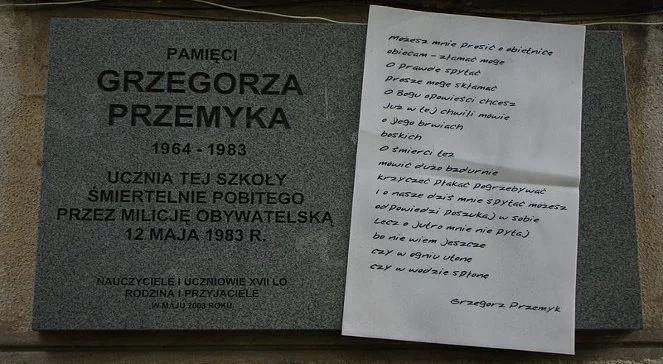 PAMIĘCI
GRZEGORZA
PRZEMYKA
1964 - 1983
UCZNIA TEJ SZKOŁY
ŚMIERTELNIE POBITEGO
PRZEZ MILICJĘ OBYWATELSKĄ
12 MAJA 1983 R.
NAUCZYCIELE I UCZNIOWIE XVII LO
RODZINA I PRZYJACIELE
W MAJU 2003 ROKU
Możesz mnie prosić o obietnicę
obiecam - złamać mogę
O prawdę spytać
Proszę mogę skłamać
O Bogu opowieści chcesz
Już w tej chwili mówię
o jego brwiach
boskich
O śmierci też
mówić dużo bzdurnie
krzyczeć płakać pogrzebywać
I o nasze dziś mnie spytać możesz
odpowiedzi poszukaj w sobie
Lecz o jutro mnie nie pytaj
bo nie wiem jeszcze
czy w ogniu utonę
czy w wodzie spłonę
Grzegorz Przemyk